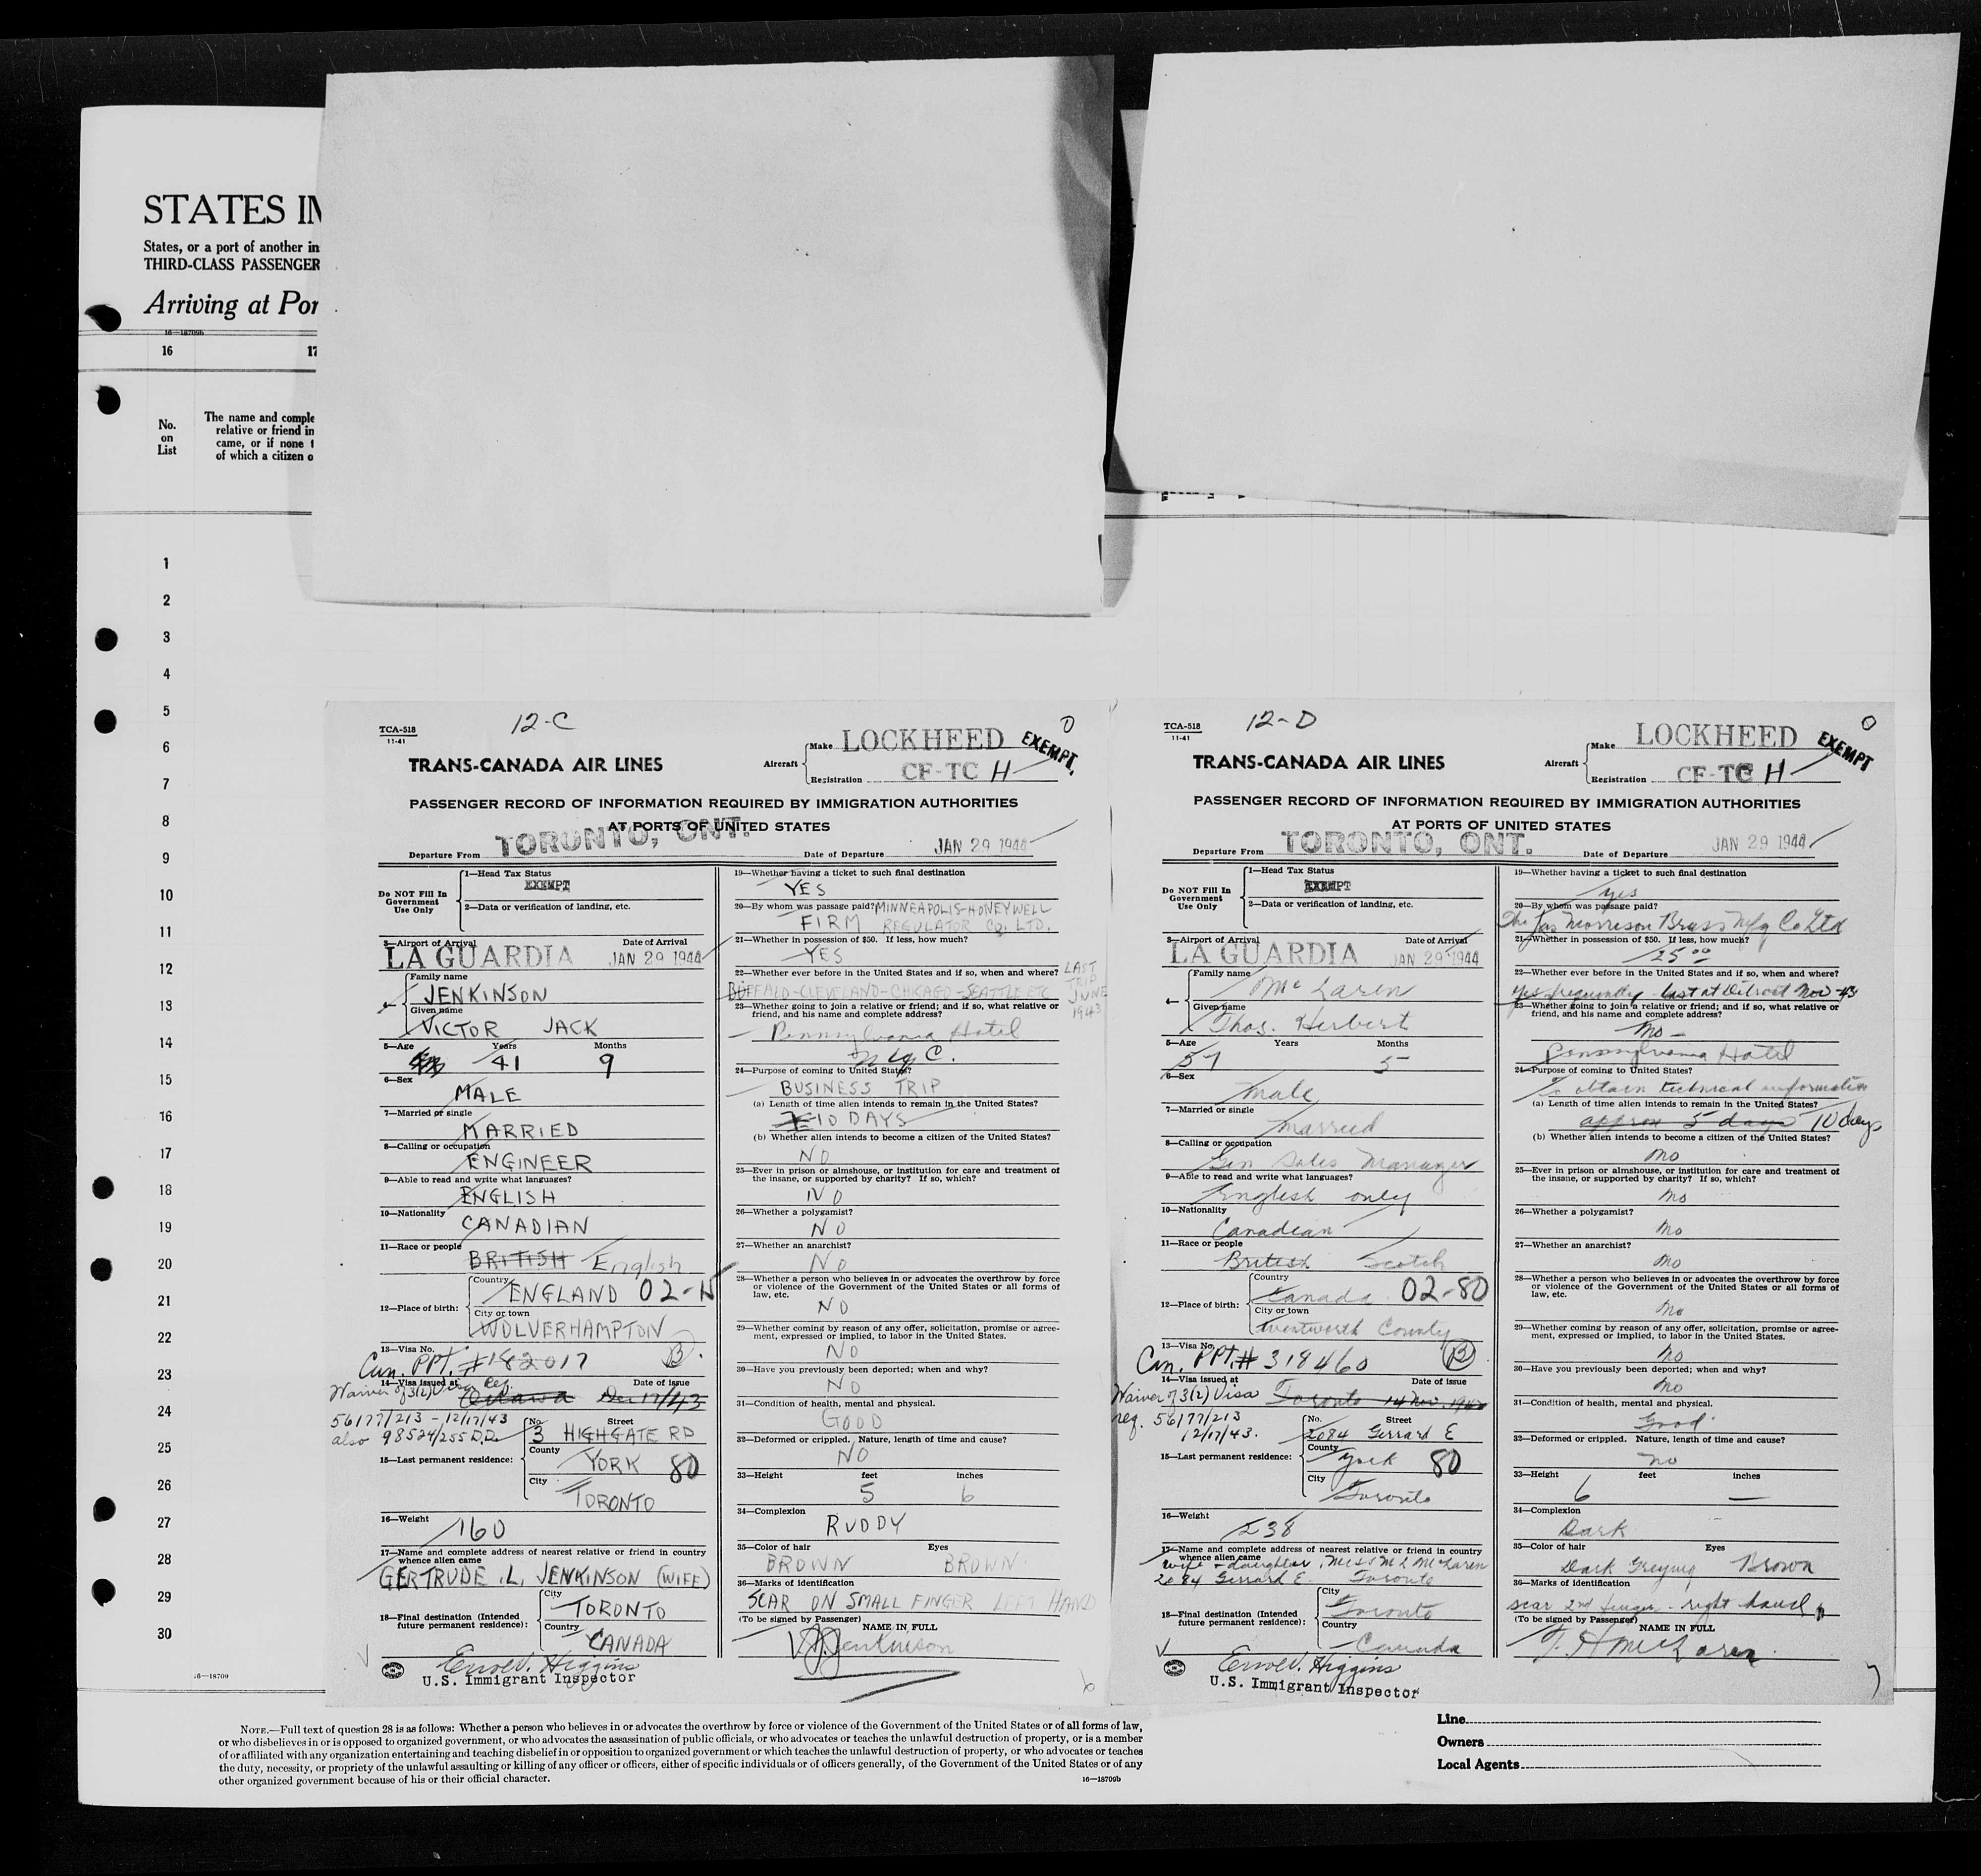 STATES IN
States, or a port of another in
THIRD-CLASS PASSENGER
Arriving at Por
16—18709b
16 17
No.
on
List
The name and comple
relative or friend in
came, or if none t
of which a citizen o
1
2
3
4
5
6
7
8
9
10
11
12
13
14
15
16
17
18
19
20
21
22
23
24
25
26
27
28
29
30
16—18709
TCA-518
11-41
12-C
0
TRANS-CANADA AIR LINES
Aircraft
Make LOCKHEED
EXEMPT.
Registration CF-TC H
PASSENGER RECORD OF INFORMATION REQUIRED BY IMMIGRATION AUTHORITIES
AT PORTS OF UNITED STATES
Departure From TORONTO, ONT.
Date of Departure JAN 29 1944
Do NOT Fill In
Government
Use Only
1—Head Tax Status
EXEMPT
2—Data or verification of landing, etc.
3—Airport of Arrival Date of Arrival
LA GUARDIA JAN 29 1944
4—
Family name
JENKINSON
Given name
VICTOR JACK
5—Age Years Months
41 9
6—Sex
MALE
7—Married or single
MARRIED
8—Calling or occupation
ENGINEER
9—Able to read and write what languages?
ENGLISH
10—Nationality
CANADIAN
11—Race or people
BRITISH English
12—Place of birth:
Country
ENGLAND 02-15
City or town
WOLVERHAMPTON
13—Visa No.
Can. PPT. #182017 B.
14—Visa issued at Date of issue
Waiver of 3(2) Visa Req. Ottawa Dec 17/43
56177/213 - 12/17/43
also 98524/255 D.D.
15—Last permanent residence:
No. Street
3 HIGHGATE RD
County
YORK 80
City
TORONTO
16—Weight
160
17—Name and complete address of nearest relative or friend in country
whence alien came
GERTRUDE .L. JENKINSON (WIFE)
18—Final destination (Intended
future permanent residence):
City
TORONTO
Country
CANADA
Errol V. Higgins
U.S. Immigrant Inspector
19—Whether having a ticket to such final destination
YES
20—By whom was passage paid? MINNEAPOLIS-HONEYWELL
FIRM REGULATOR CO. LTD.
21—Whether in possession of $50. If less, how much?
YES
22—Whether ever before in the United States and if so, when and where?
BUFFALO-CLEVELAND-CHICAGO-SEATTLE ETC
LAST
TRIP
JUNE
1943
23—Whether going to join a relative or friend; and if so, what relative or
friend, and his name and complete address?
Pennsylvania Hotel
N.Y.C.
24—Purpose of coming to United States?
BUSINESS TRIP
(a) Length of time alien intends to remain in the United States?
10 DAYS
(b) Whether alien intends to become a citizen of the United States?
NO
25—Ever in prison or almshouse, or institution for care and treatment of
the insane, or supported by charity? If so, which?
NO
26—Whether a polygamist?
NO
27—Whether an anarchist?
NO
28—Whether a person who believes in or advocates the overthrow by force
or violence of the Government of the United States or all forms of
law, etc.
NO
29—Whether coming by reason of any offer, solicitation, promise or agree-
ment, expressed or implied, to labor in the United States.
NO
30—Have you previously been deported; when and why?
NO
31—Condition of health, mental and physical.
GOOD
32—Deformed or crippled. Nature, length of time and cause?
NO
33—Height feet inches
5 6
34—Complexion
RUDDY
35—Color of hair Eyes
BROWN BROWN
36—Marks of identification
SCAR ON SMALL FINGER LEFT HAND
(To be signed by Passenger) NAME IN FULL
V.J. Jenkinson
TCA-518
11-41
12-D
0
TRANS-CANADA AIR LINES
Aircraft
Make LOCKHEED
EXEMPT
Registration CF-TC H
PASSENGER RECORD OF INFORMATION REQUIRED BY IMMIGRATION AUTHORITIES
AT PORTS OF UNITED STATES
Departure From TORONTO, ONT.
Date of Departure JAN 29 1944
Do NOT Fill In
Government
Use Only
1—Head Tax Status
EXEMPT
2—Data or verification of landing, etc.
3—Airport of Arrival Date of Arrival
LA GUARDIA JAN 29 1944
4—
Family name
McLaren
Given name
Thos. Herbert
5—Age Years Months
57 5
6—Sex
Male
7—Married or single
Married
8—Calling or occupation
Gen Sales Manager
9—Able to read and write what languages?
English only
10—Nationality
Canadian
11—Race or people
British Scotch
12—Place of birth:
Country
Canada 02-80
City or town
Wentworth County
13—Visa No.
Can. PPT. # 318460 B
14—Visa issued at Date of issue
Waiver of 3(2) Visa Toronto 14 Nov. 1940
req. 56177/213
12/17/43.
15—Last permanent residence:
No. Street
2084 Gerrard E
County
York 80
City
Toronto
16—Weight
238
17—Name and complete address of nearest relative or friend in country
whence alien came
wife + daughter, Miss M L McLaren
2084 Gerrard E. Toronto
18—Final destination (Intended
future permanent residence):
City
Toronto
Country
Canada
Errol V. Higgins
U.S. Immigrant Inspector
19—Whether having a ticket to such final destination
yes
20—By whom was passage paid?
The Jas Morrison Brass Mfg Co Ltd
21—Whether in possession of $50. If less, how much?
25.00
22—Whether ever before in the United States and if so, when and where?
yes frequently - last at Detroit Nov-43
23—Whether going to join a relative or friend; and if so, what relative or
friend, and his name and complete address?
No —
Pennsylvania Hotel
24—Purpose of coming to United States?
To obtain technical information
(a) Length of time alien intends to remain in the United States?
approx 5 days 10 days
(b) Whether alien intends to become a citizen of the United States?
No
25—Ever in prison or almshouse, or institution for care and treatment of
the insane, or supported by charity? If so, which?
No
26—Whether a polygamist?
No
27—Whether an anarchist?
No
28—Whether a person who believes in or advocates the overthrow by force
or violence of the Government of the United States or all forms of
law, etc.
No
29—Whether coming by reason of any offer, solicitation, promise or agree-
ment, expressed or implied, to labor in the United States.
No
30—Have you previously been deported; when and why?
No
31—Condition of health, mental and physical.
Good
32—Deformed or crippled. Nature, length of time and cause?
no
33—Height feet inches
6 —
34—Complexion
Dark
35—Color of hair Eyes
Dark Greying Brown
36—Marks of identification
scar 2nd finger - right hand
(To be signed by Passenger) NAME IN FULL
T. H McLaren
NOTE.—Full text of question 28 is as follows: Whether a person who believes in or advocates the overthrow by force or violence of the Government of the United States or of all forms of law,
or who disbelieves in or is opposed to organized government, or who advocates the assassination of public officials, or who advocates or teaches the unlawful destruction of property, or is a member
of or affiliated with any organization entertaining and teaching disbelief in or opposition to organized government or which teaches the unlawful destruction of property, or who advocates or teaches
the duty, necessity, or propriety of the unlawful assaulting or killing of any officer or officers, either of specific individuals or of officers generally, of the Government of the United States or of any
other organized government because of his or their official character.
16—18709b
Line
Owners
Local Agents